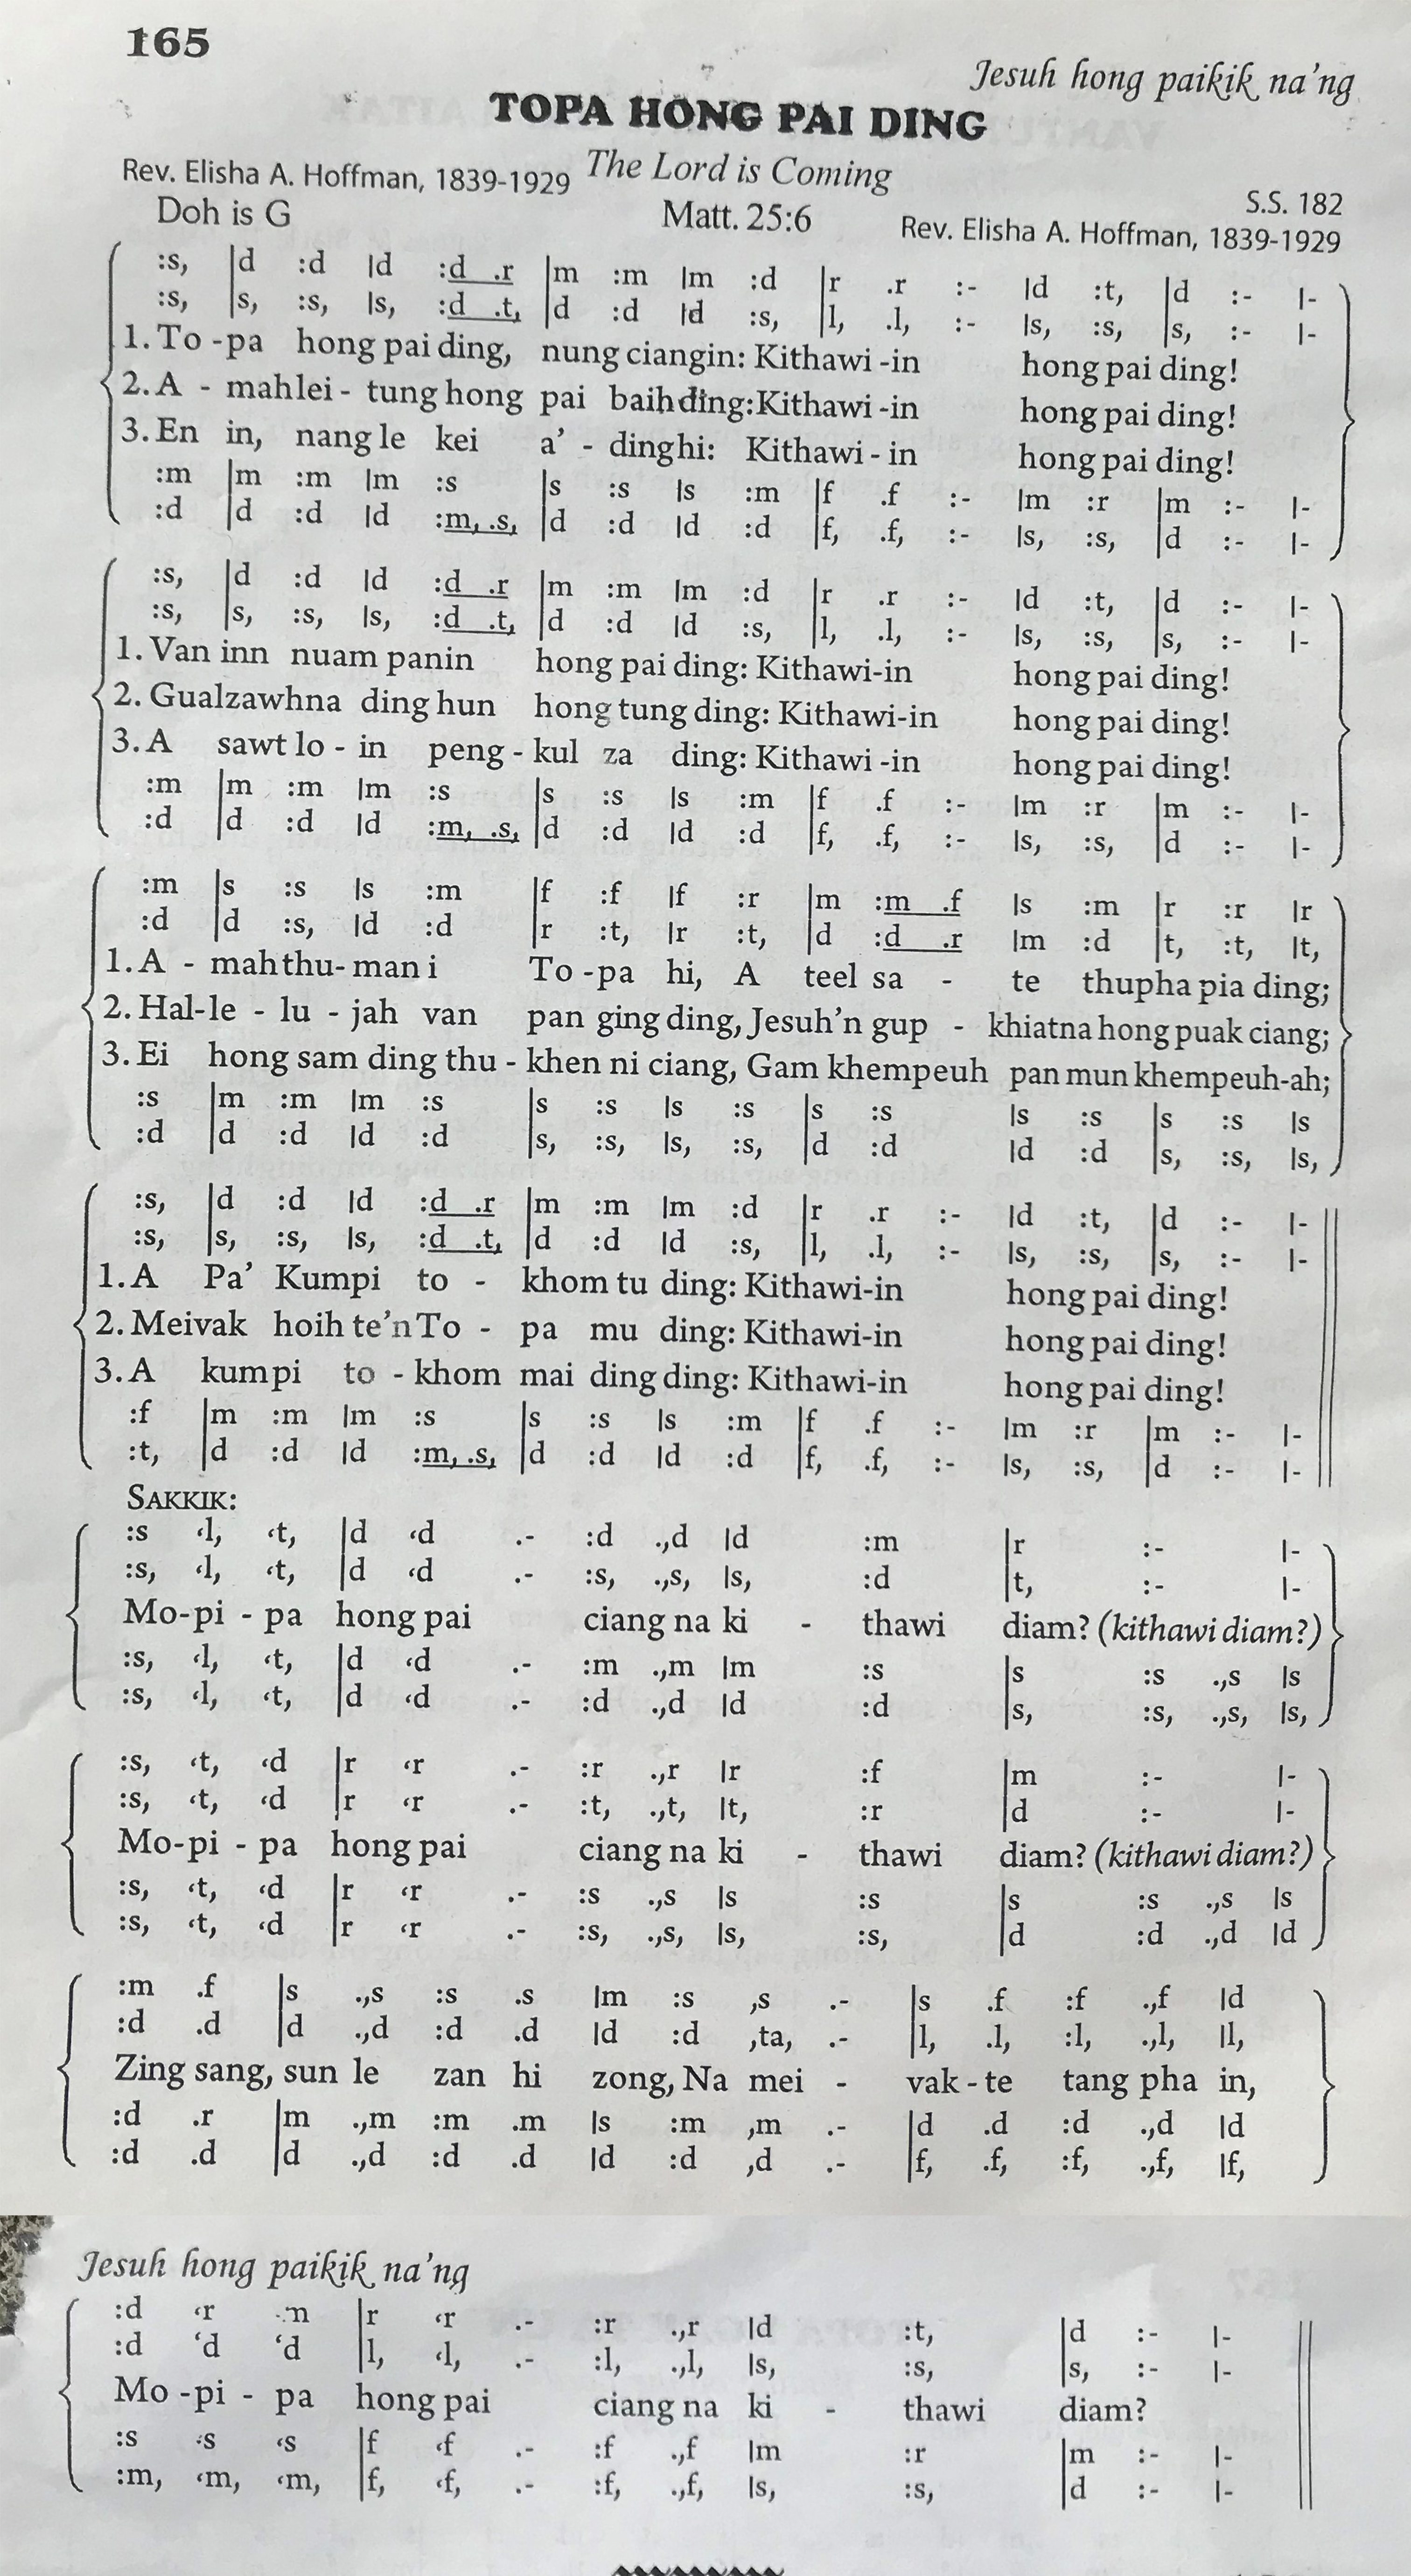 165
Jesuh hong paikik na'ng
TOPA HONG PAI DING
Rev. Elisha A. Hoffman, 1839-1929 The Lord is Coming S.S. 182
Doh is G Matt. 25:6 Rev. Elisha A. Hoffman, 1839-1929
:s, |d :d ld :d .r |m :m lm :d |r .r :- ld :t, |d :- l-
:s, |s, :s, ls, :d .t, |d :d ld :s, |l, .l, :- ls, :s, |s, :- l-
1. To -pa hong pai ding, nung ciangin: Kithawi -in hong pai ding!
2. A - mahlei - tung hong pai baih ding: Kithawi -in hong pai ding!
3. En in, nang le kei a' - dinghi: Kithawi - in hong pai ding!
:m |m :m lm :s |s :s ls :m |f .f :- lm :r |m :- l-
:d |d :d ld :m, .s, |d :d ld :d |f, .f, :- ls, :s, |d :- l-
:s, |d :d ld :d .r |m :m lm :d |r .r :- ld :t, |d :- l-
:s, |s, :s, ls, :d .t, |d :d ld :s, |l, .l, :- ls, :s, |s, :- l-
1. Van inn nuam panin hong pai ding: Kithawi-in hong pai ding!
2. Gualzawhna ding hun hong tung ding: Kithawi-in hong pai ding!
3. A sawt lo - in peng - kul za ding: Kithawi -in hong pai ding!
:m |m :m lm :s |s :s ls :m |f .f :- lm :r |m :- l-
:d |d :d ld :m, .s, |d :d ld :d |f, .f, :- ls, :s, |d :- l-
:m |s :s ls :m |f :f lf :r |m :m .f ls :m |r :r lr
:d |d :s, ld :d |r :t, lr :t, |d :d .r lm :d |t, :t, lt,
1. A - mah thu- man i To -pa hi, A teel sa - te thupha pia ding;
2. Hal-le - lu - jah van pan ging ding, Jesuh'n gup - khiatna hong puak ciang;
3. Ei hong sam ding thu - khen ni ciang, Gam khempeuh pan mun khempeuh-ah;
:s |m :m lm :s |s :s ls :s |s :s ls :s |s :s ls
:d |d :d ld :d |s, :s, ls, :s, |d :d ld :d |s, :s, ls,
:s, |d :d ld :d .r |m :m lm :d |r .r :- ld :t, |d :- l-
:s, |s, :s, ls, :d .t, |d :d ld :s, |l, .l, :- ls, :s, |s, :- l-
1. A Pa' Kumpi to - khom tu ding: Kithawi-in hong pai ding!
2. Meivak hoih te'n To - pa mu ding: Kithawi-in hong pai ding!
3. A kumpi to - khom mai ding ding: Kithawi-in hong pai ding!
:f |m :m lm :s |s :s ls :m |f .f :- lm :r |m :- l-
:t, |d :d ld :m, .s, |d :d ld :d |f, .f, :- ls, :s, |d :- l-
SAKKIK:
:s ‹l, ‹t, |d ‹d .- :d .,d ld :m |r :- l-
:s, ‹l, ‹t, |d ‹d .- :s, .,s, ls, :d |t, :- l-
Mo-pi - pa hong pai ciang na ki - thawi diam? (kithawi diam?)
:s, ‹l, ‹t, |d ‹d .- :m .,m lm :s |s :s .,s ls
:s, ‹l, ‹t, |d ‹d .- :d .,d ld :d |s, :s, .,s, ls,
:s, ‹t, ‹d |r ‹r .- :r .,r lr :f |m :- l-
:s, ‹t, ‹d |r ‹r .- :t, .,t, lt, :r |d :- l-
Mo-pi - pa hong pai ciang na ki - thawi diam? (kithawi diam?)
:s, ‹t, ‹d |r ‹r .- :s .,s ls :s |s :s .,s ls
:s, ‹t, ‹d |r ‹r .- :s, .,s, ls, :s, |d :d .,d ld
:m .f |s .,s :s .s lm :s ,s .- |s .f :f .,f ld
:d .d |d .,d :d .d ld :d ,ta, .- |l, .l, :l, .,l, ll,
Zing sang, sun le zan hi zong, Na mei - vak - te tang pha in,
:d .r |m .,m :m .m ls :m ,m .- |d .d :d .,d ld
:d .d |d .,d :d .d ld :d ,d .- |f, .f, :f, .,f, lf,
Jesuh hong paikik na'ng
:d ‹r ‹m |r ‹r .- :r .,r ld :t, |d :- l-
:d ‹d ‹d |l, ‹l, .- :l, .,l, ls, :s, |s, :- l-
Mo -pi - pa hong pai ciang na ki - thawi diam?
:s ‹s ‹s |f ‹f .- :f .,f lm :r |m :- l-
:m, ‹m, ‹m, |f, ‹f, .- :f, .,f, ls, :s, |d :- l-